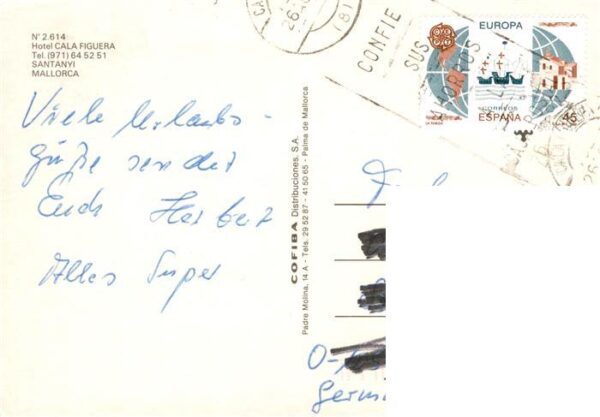 Nº 2.614
Hotel CALA FIGUERA
Tel. (971) 64 52 51
SANTANYI
MALLORCA
Viele Urlaubs-
grüße sendet
Euch Herbert
Alles Super
COFIBA Distribuciones, S.A.
Padre Molina, 14 A - Tels. 29 52 87 - 41 50 65 - Palma de Mallorca
CONFIE
SUS
EUROPA
CORREOS
ESPAÑA
45
O-
Germ